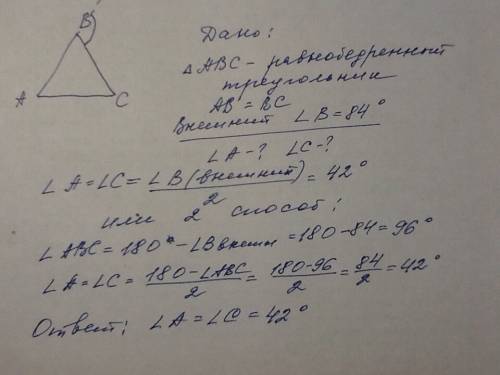 B
A
C
Дано:
△ ABC - равнобедренный
треугольник
AB = BC
Внешний ∠B = 84°
∠A-? ∠C-?
∠A = ∠C = ∠B (внешний) / 2 = 42°
или 2 способ:
∠ABC = 180° - ∠B внешн = 180 - 84 = 96°
∠A = ∠C = 180 - ∠ABC / 2 = 180 - 96 / 2 = 84 / 2 = 42°
Ответ: ∠A = ∠C = 42°